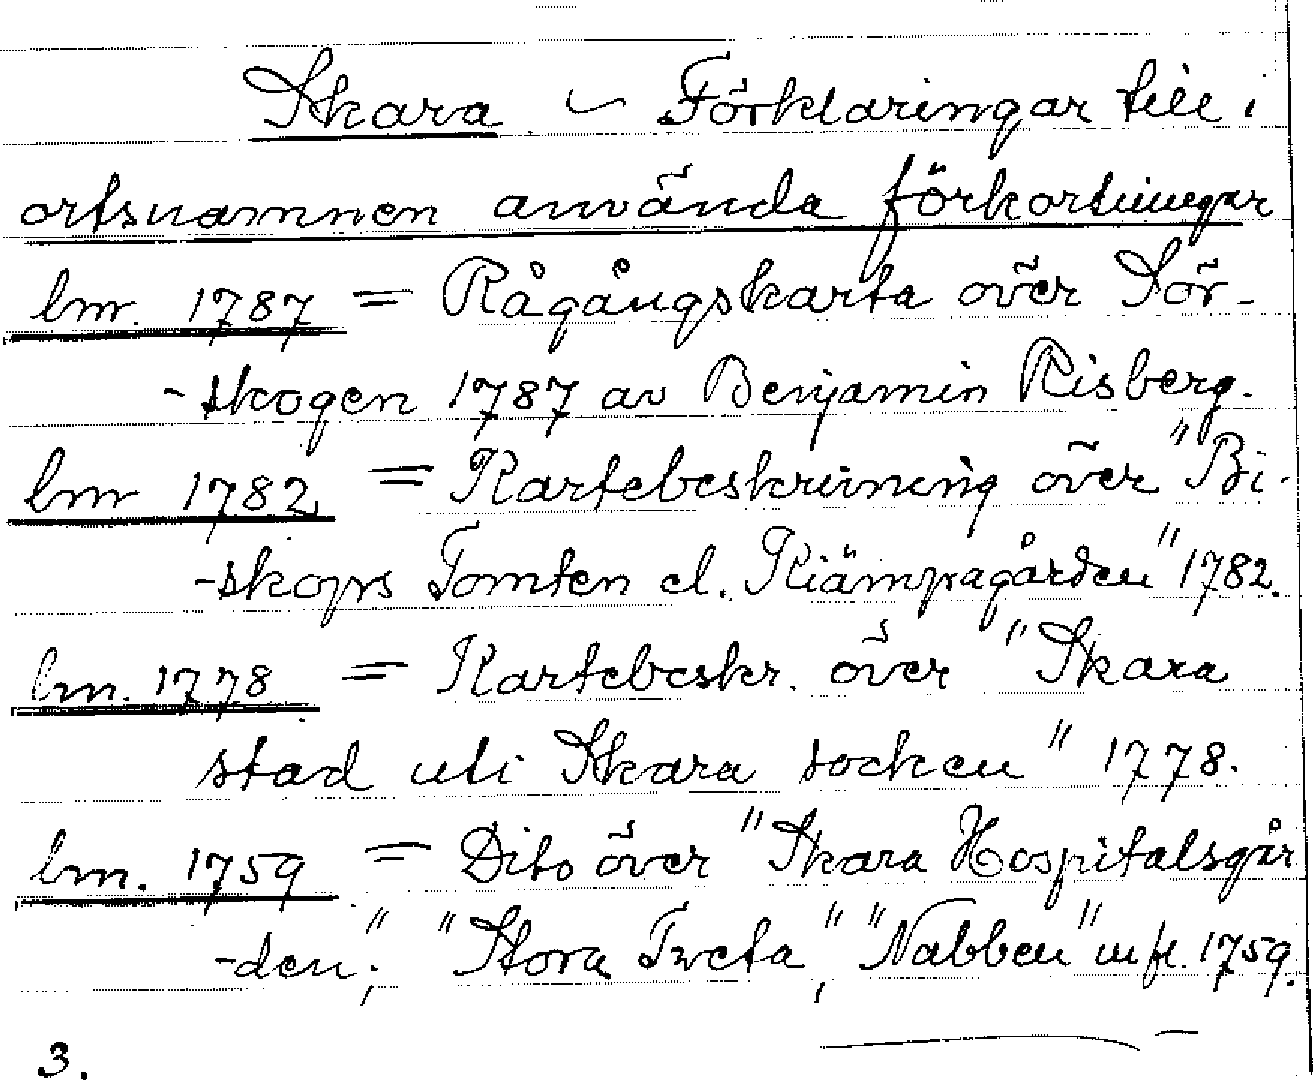 Skara – Förklaringar till i
ortsnamnen använda förkortningar
lm. 1787 = Rågångskarta över Sör-
-skogen 1787 av Benjamin Risberg.
lm 1782 = Kartebeskrivning över "Bi-
-skops Tomten el. Kiämpagården" 1782.
lm. 1778 = Kartebeskr. över "Skara
stad uti Skara socken" 1778.
lm. 1759 = Dito över "Skara Hospitalsgår
-den", "Stora Tveta", "Nabben" m fl. 1759.
3.